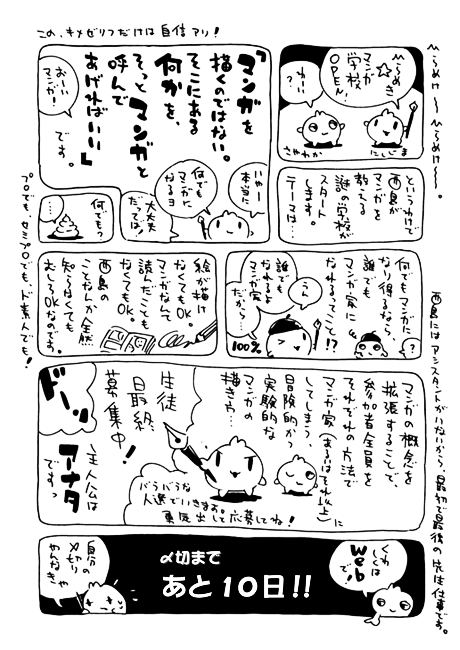 この、キメゼリフだけは自信アリ!
ひらめけ〜ひらめけ〜。
ひらめき☆
マンガ
学校、
OPEN!
わーい
さやわか
にしじま
というわけで
西島が
マンガを
教える
謎の学校が
スタート
します。
テーマは…
「マンガを
描くのではない。
そこにある
何かを、
そっとマンガと
呼んで
あげればいい」
です。
おーい
マンガ!
いやー
本当に
何でも
マンガに
なるヨ
大丈夫
だってば!
何でも?
…
プロでも、セミプロでも、ド素人でも!
何でもマンガに
なり得るなら、
誰でも
マンガ家に
なれるってこと!?
?
うん
誰でも
マンガ家
なれるよ
だから…
100%
絵が描け
なくてもOK。
マンガなんて、
読んだことも
なくてもOK。
西島の
ことなんか全然
知らなくても
むしろOKなのです。
西島にはアシスタントがいないから、最初で最後の先生仕事です。
マンガの概念を
拡張することで、
参加者全員を
それぞれの方法で
マンガ家(あるいはそれ以上)に
してしまう、
冒険的かつ
実験的な
マンガの
描き方…
生徒
最終
募集中!
バラバラな
人選でいきます。
勇気出して応募してね!
ドーン
主人公は
アナタ
ですっ
くわしくは
webで!
〆切まで
あと10日!!
自分の
〆切り
やんなきゃ